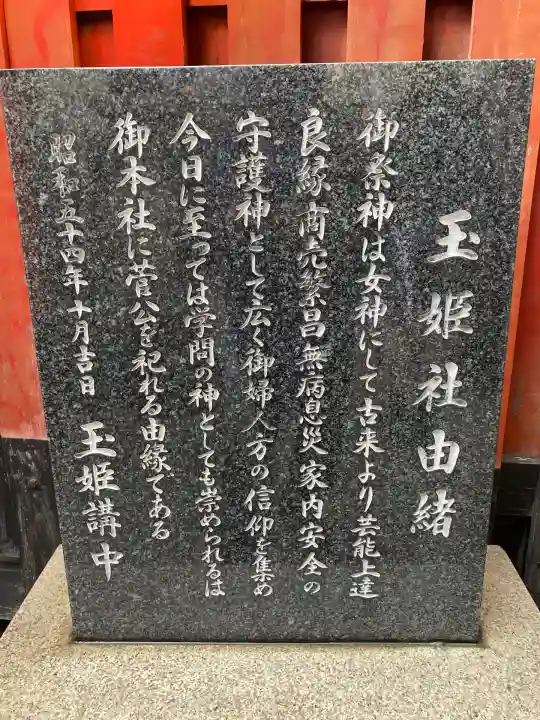 玉姫社由緒
御祭神は女神にして古来より芸能上達
良縁商売繁昌無病息災家内安全の
守護神として広く御婦人方の信仰を集め
今日に至っては学問の神としても崇められるは
御本社に菅公を祀れる由縁である
昭和五十四年十月吉日 玉姫講中